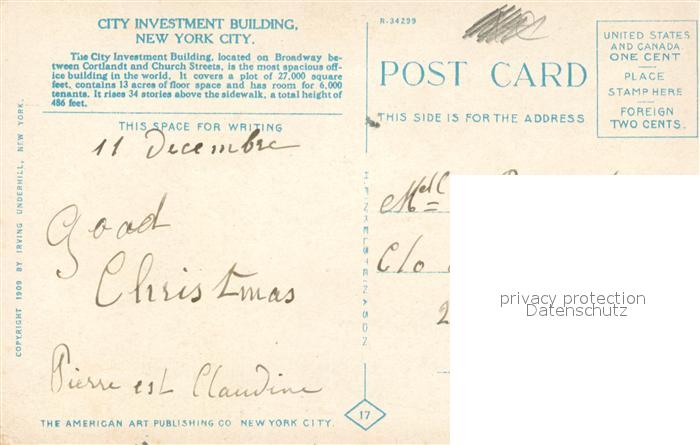 CITY INVESTMENT BUILDING,
NEW YORK CITY.
The City Investment Building, located on Broadway be-
tween Cortlandt and Church Streets, is the most spacious off-
ice building in the world. It covers a plot of 27,000 square
feet, contains 13 acres of floor space and has room for 6,000
tenants. It rises 34 stories above the sidewalk, a total height of
486 feet.
THIS SPACE FOR WRITING
11 Decembre
Good
Christmas
Pierre est Claudine
THE AMERICAN ART PUBLISHING CO NEW YORK CITY.
COPYRIGHT 1909 BY IRVING UNDERHILL, NEW YORK.
R-34299
POST CARD
THIS SIDE IS FOR THE ADDRESS
UNITED STATES
AND CANADA
ONE CENT
PLACE
STAMP HERE
FOREIGN
TWO CENTS.
Melle
C/o
2
17
privacy protection
Datenschutz